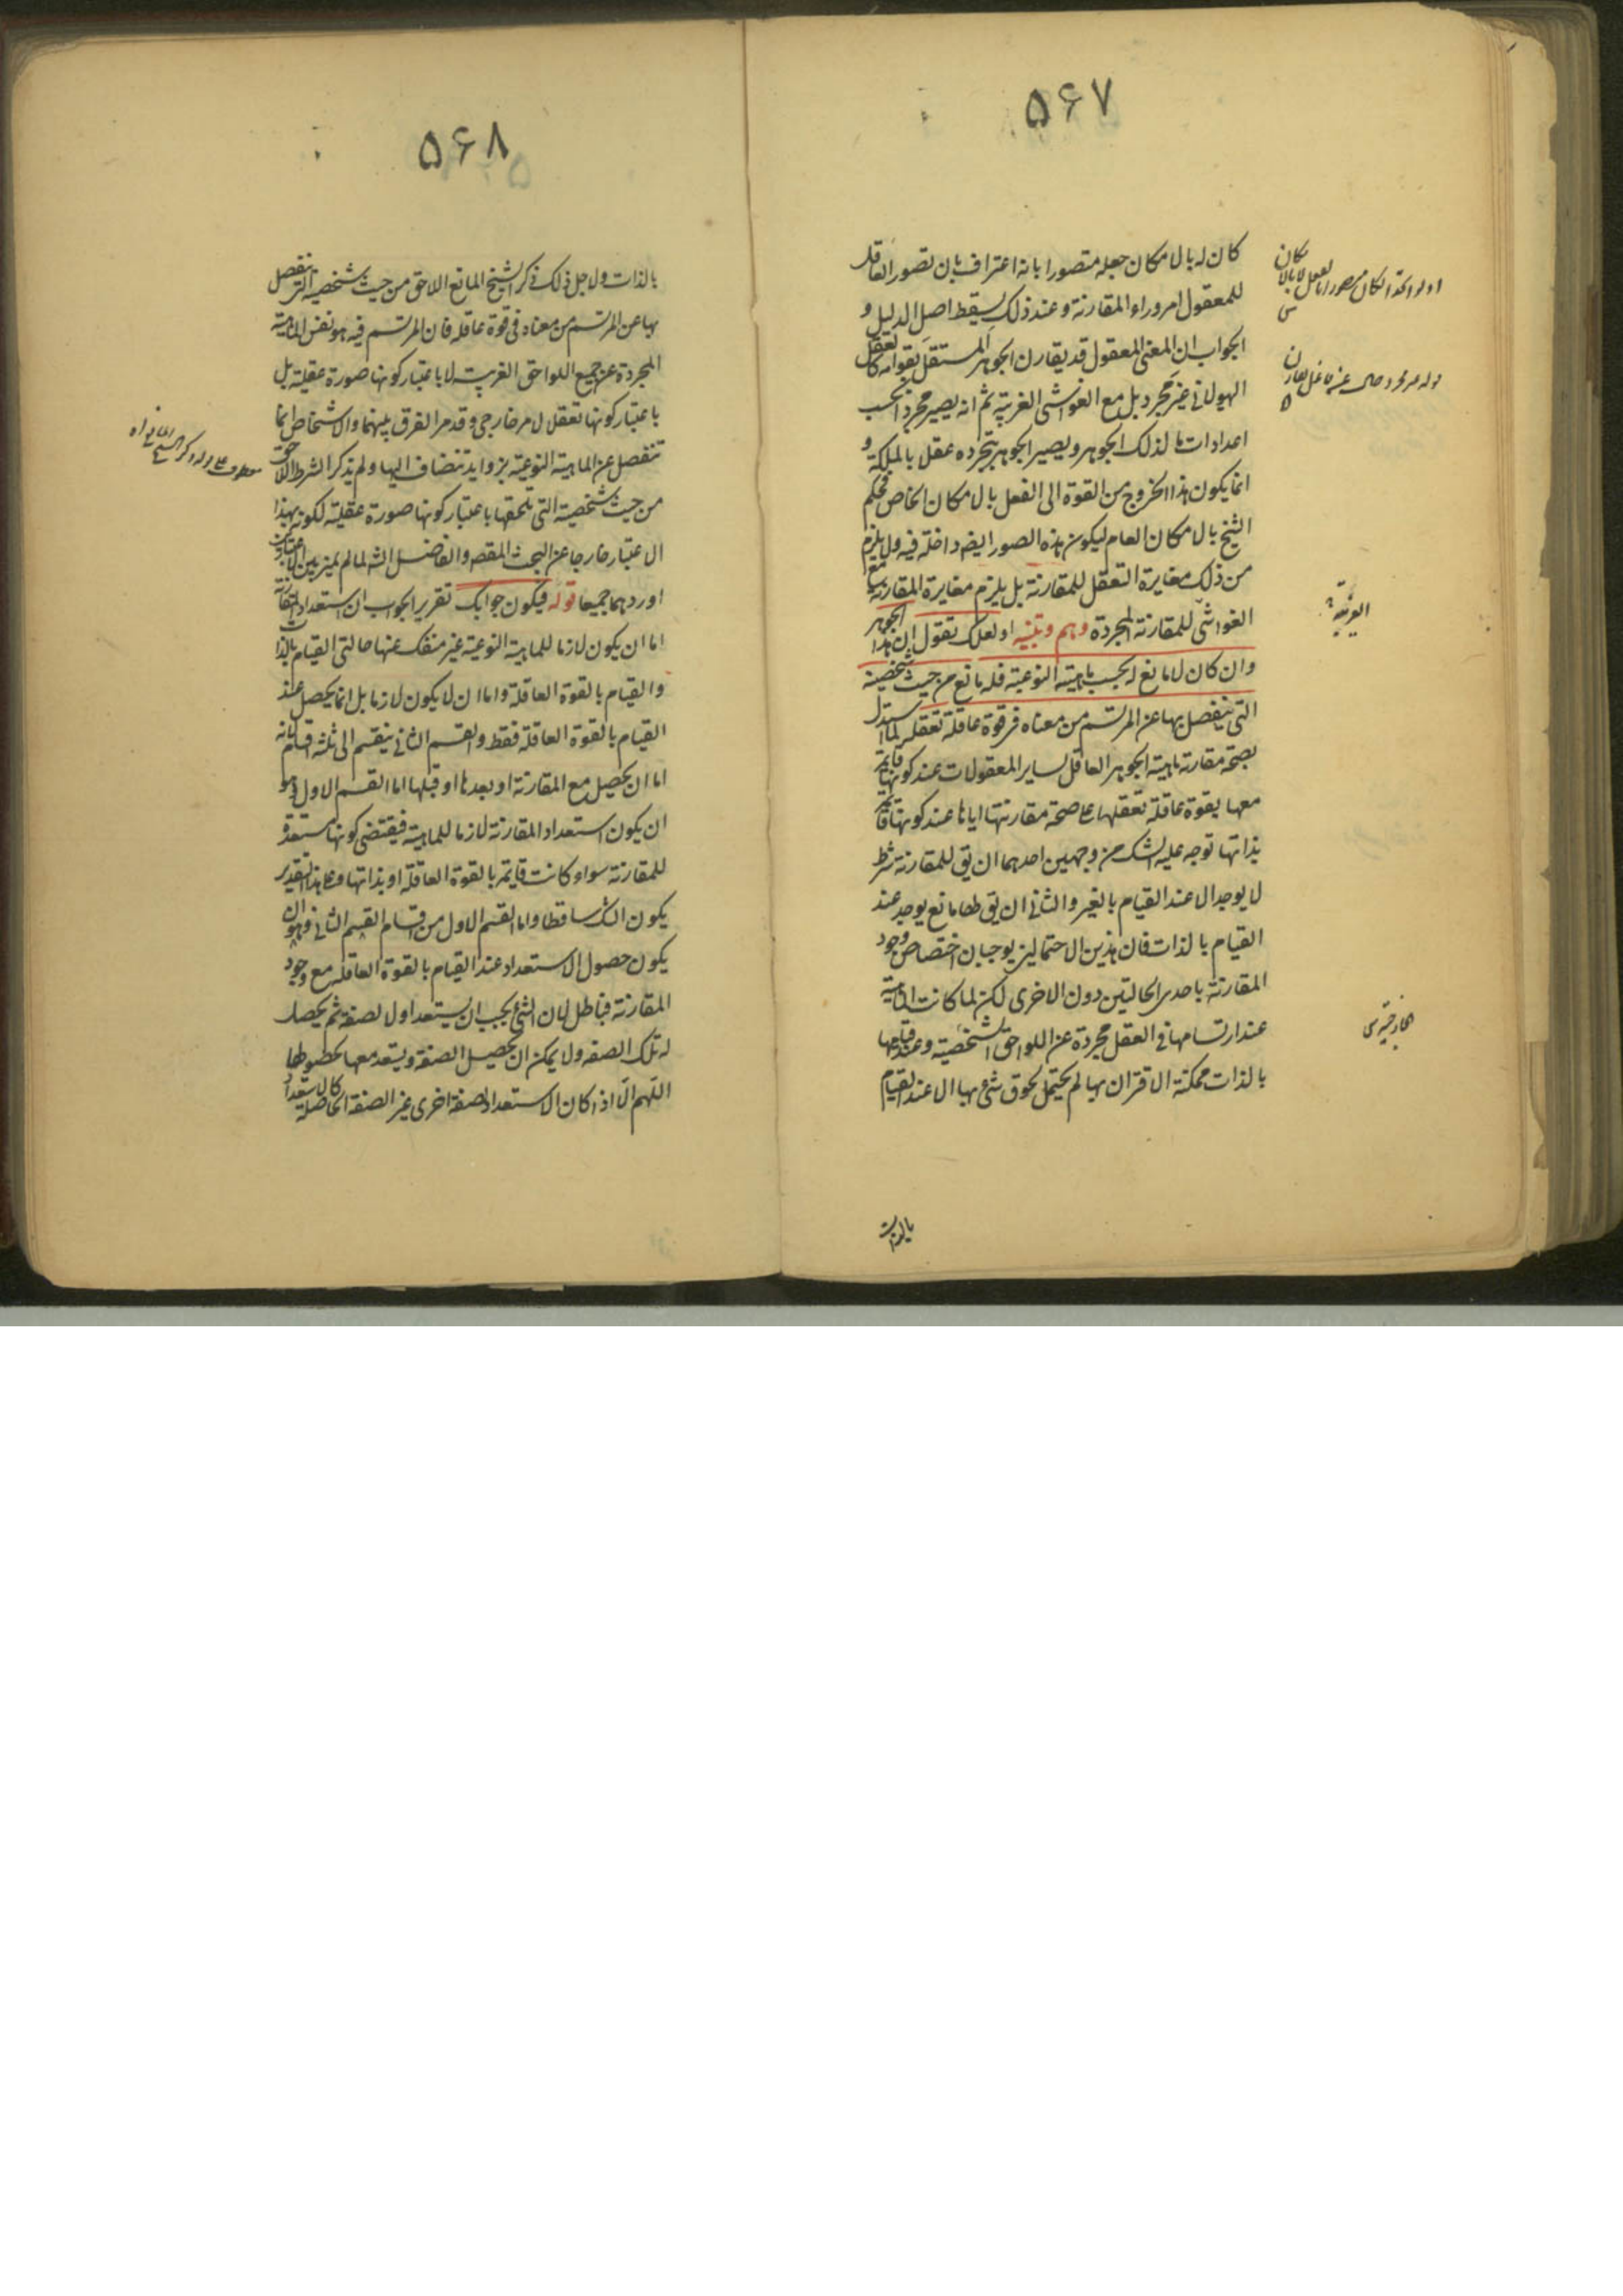 ۵۶۷
كان له بالامكان جعله متصورا بانه اعتراف بان تصور العاقل
للمعقول امر وراء المقارنة وعند ذلك يسقط اصل الدليل و
الجواب ان المعنى المعقول قد يقارن الجوهر المستقل بقوامه كالعقل
الهيولانى غير مجرد بل مع الغواشى الغريبة ثم انه يصير مجردا بحسب
اعدادات ما لذلك الجوهر ويصير الجوهر بتجرده عقلا بالملكة و
انما يكون هذا الخروج من القوة الى الفعل بالامكان الخاص فحكم
الشيخ بالامكان العام ليكون هذه الصور ايضه داخلة فيه ولا يلزم
من ذلك مغايرة التعقل للمقارنة بل يلزم مغايرة المقارنة مع
الغواشى للمقارنة المجردة وهم وتنبيه او لعلك تقول ان هذا الجوهر
وان كان لا مانع له بحسب ماهيته النوعية فله مانع من حيث شخصيته
التى ينفصل بها عن المرتسم من معناه فى قوة عاقلة تعقله لما استدل
بصحة مقارنة ماهية الجوهر العاقل لساير المعقولات عند كونها قايمة
معها بقوة عاقلة تعقلها على صحة مقارنتها اياها عند كونها قائمة
بذاتها توجه عليه الشك من وجهين احدهما ان يق للمقارنة شرط
لا يوجد الا عند القيام بالغير والثانى ان يق لها مانع يوجد عند
القيام بالذات فان هذين الاحتمالين يوجبان اختصاص وجود
المقارنة باحدى الحالتين دون الاخرى لكن لما كانت الماهية
عند ارتسامها فى العقل مجردة عن اللواحق الشخصية وعند قيامها
بالذات ممكنة الاقتران بها لم يحتمل لحوق شئ بها الا عند القيام
بالذات
الغريبة
الخارجية
۵۶۸
بالذات ولاجل ذلك ذكر الشيخ المانع اللاحق من حيث شخصيته التى تنفصل
بها عن المرتسم من معناه فى قوة عاقلة فان المرتسم فيه هو نفس الماهية
المجردة عن جميع اللواحق الغريبة لا باعتبار كونها صورة عقلية بل
باعتبار كونها تعقلا لامر خارجى وقد مر الفرق بينهما والاشخاص انما
تنفصل عن الماهية النوعية بزوايد تنضاف اليها ولم يذكر الشرط اللاحق
من حيث شخصيته التى تلحقها باعتبار كونها صورة عقلية لكونه بهذا
الاعتبار خارجا عن البحث المقصد والفاضل الشه لما لم يميز بين الاعتبارين
اوردهما جميعا قوله فيكون جوابك تقرير الجواب ان استعداد المقارنة
اما ان يكون لازما للماهية النوعية غير منفك عنها حالتى القيام بالذات
والقيام بالقوة العاقلة واما ان لا يكون لازما بل انما يحصل عند
القيام بالقوة العاقلة فقط والقسم الثانى ينقسم الى ثلثة اقسام لانه
اما ان يحصل مع المقارنة او بعدها او قبلها اما القسم الاول وهو
ان يكون استعداد المقارنة لازما للماهية فيقتضى كونها مستعدة
للمقارنة سواء كانت قايمة بالقوة العاقلة او بذاتها وعلى هذا التقدير
يكون الشك ساقطا واما القسم الاول من اقسام القسم الثانى وهو ان
يكون حصول الاستعداد عند القيام بالقوة العاقلة مع وجود
المقارنة فباطل لان الشئ يجب ان يستعد اولا لصفة ثم يحصل
له تلك الصفة ولا يمكن ان تحصيل الصفة ويستعد معها لحصولها
اللهم الا اذا كان الاستعداد لصفة اخرى غير الصفة الحاصلة كالاستعداد